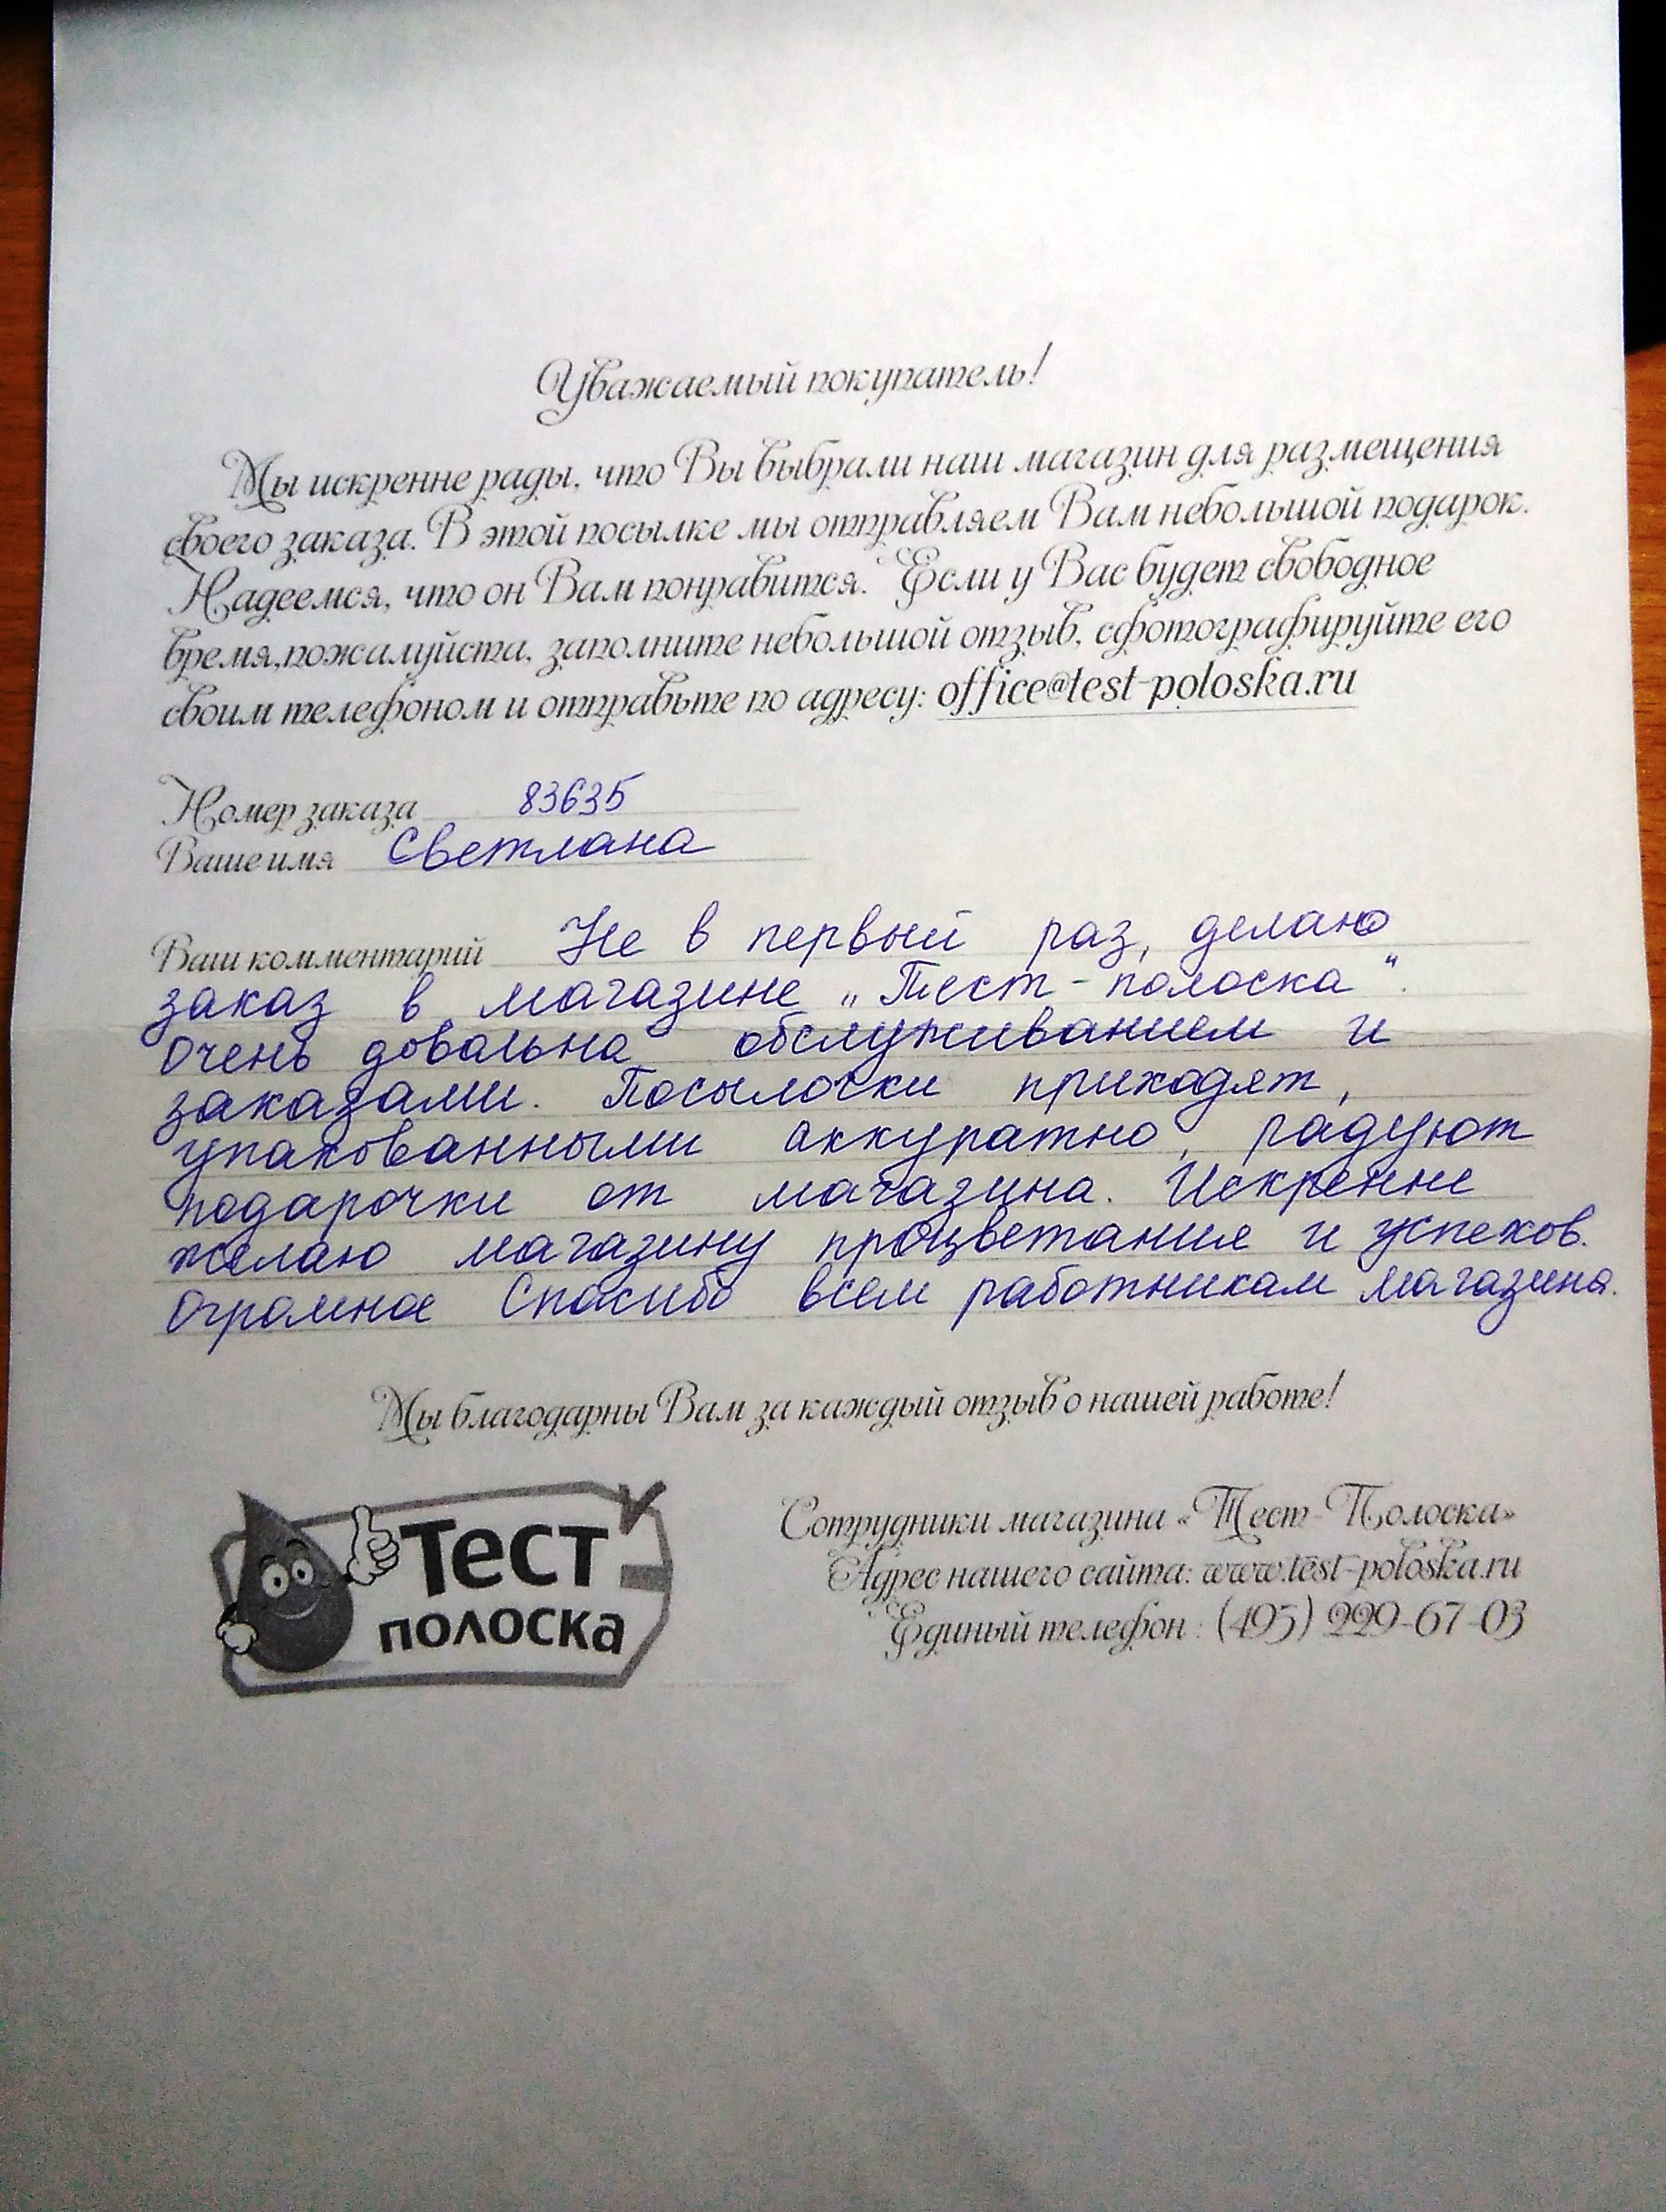 Уважаемый покупатель!
Мы искренне рады, что Вы выбрали наш магазин для размещения
своего заказа. В этой посылке мы отправляем Вам небольшой подарок.
Надеемся, что он Вам понравится. Если у Вас будет свободное
время,пожалуйста, заполните небольшой отзыв, сфотографируйте его
своим телефоном и отправьте по адресу: office@test-poloska.ru
Номер заказа 83635
Ваше имя Светлана
Ваш комментарий Не в первый раз, делаю
заказ в магазине „Тест-полоска".
Очень довольна обслуживанием и
заказами. Посылочки приходят,
упакованными аккуратно, радуют
подарочки от магазина. Искренне
желаю магазину процветания и успехов.
Огромное Спасибо всем работникам магазина.
Мы благодарны Вам за каждый отзыв о нашей работе!
Тест
полоска
Сотрудники магазина «Тест-Полоска»
Адрес нашего сайта: www.test-poloska.ru
Единый телефон : (495) 229-67-03